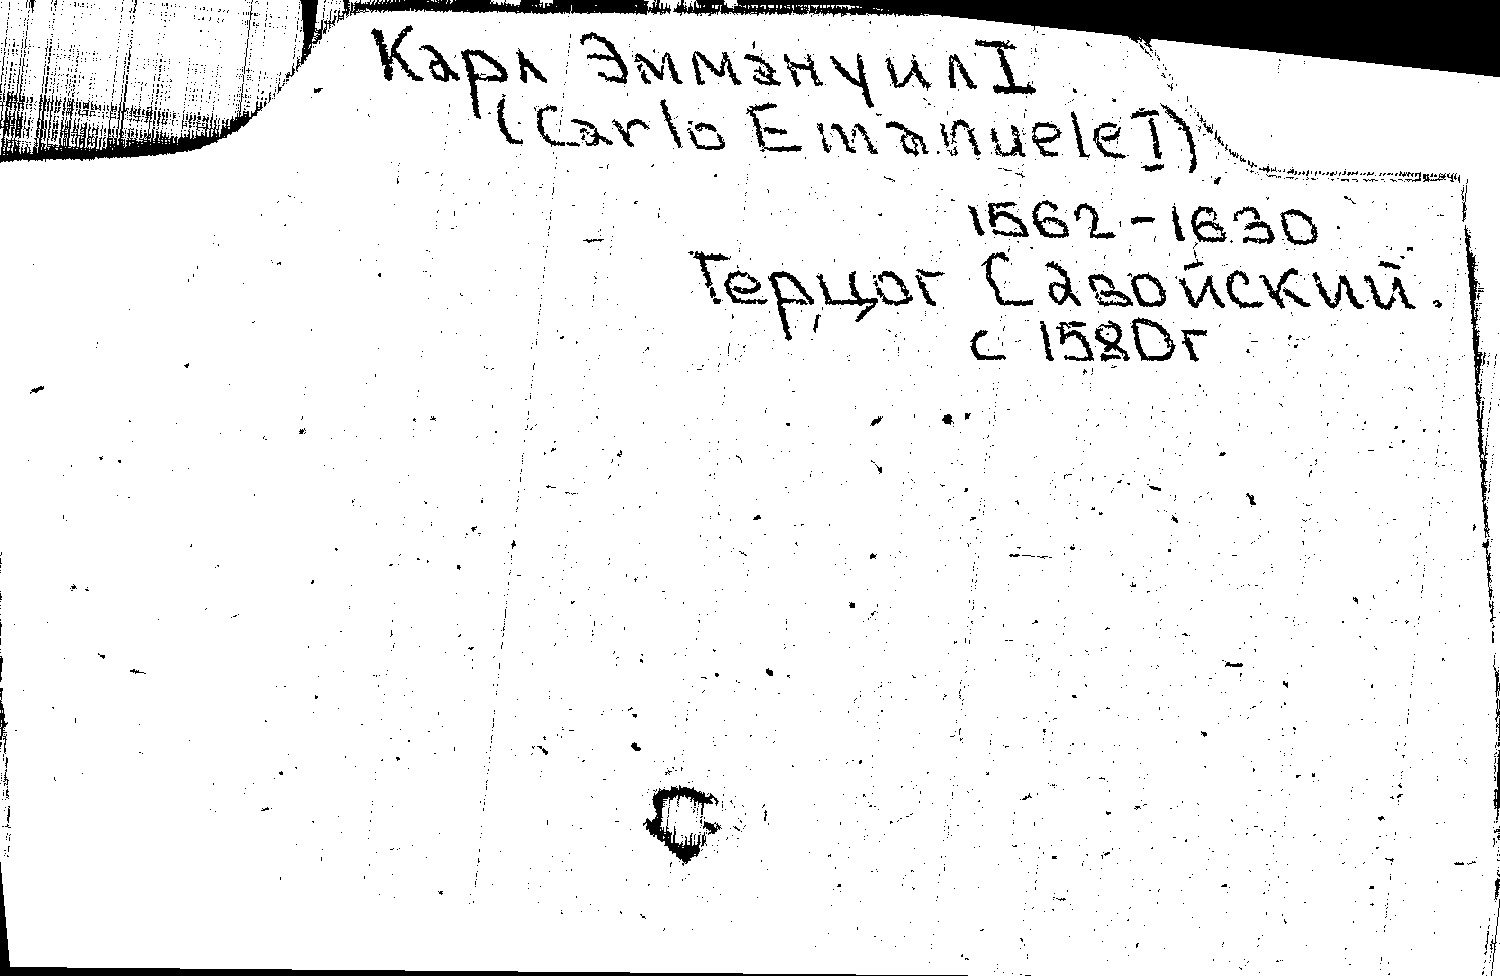 Карл Эммануил I
(Carlo Emanuele I)
1562-1630
Герцог Савойский.
с 1580г